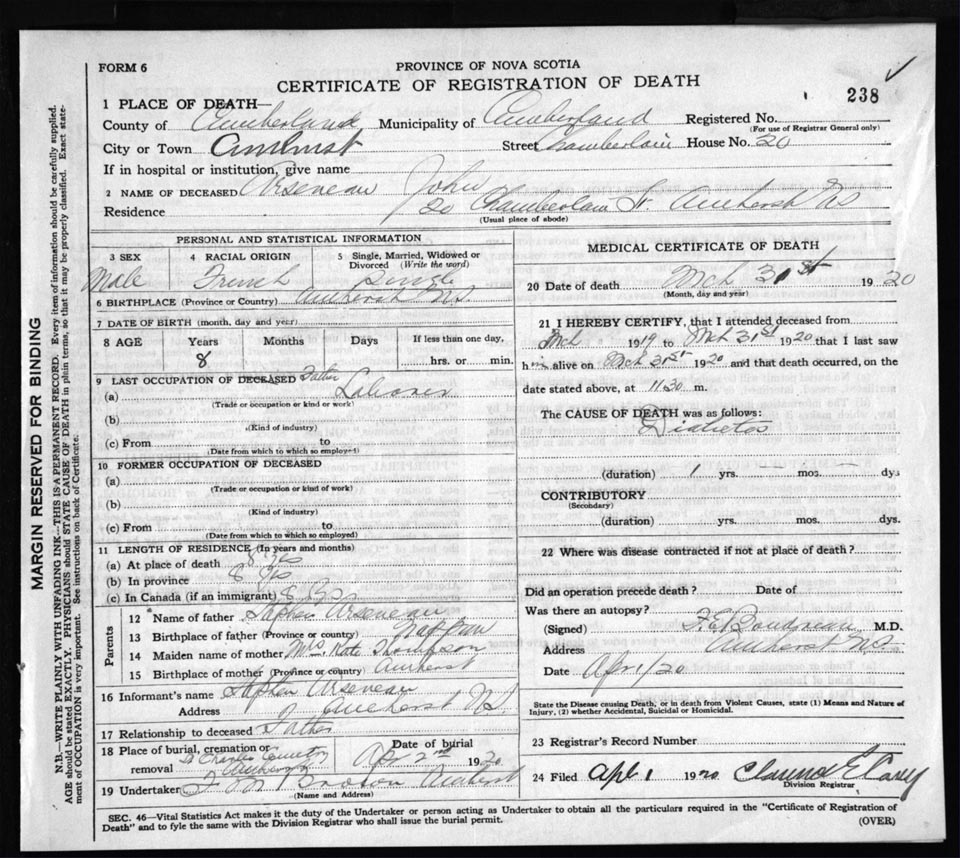 FORM 6
PROVINCE OF NOVA SCOTIA
CERTIFICATE OF REGISTRATION OF DEATH
238
1 PLACE OF DEATH—
County of Cumberland Municipality of Cumberland Registered No.
(For use of Registrar General only)
City or Town Amherst Street Chamberlain House No. 20
If in hospital or institution, give name
2 NAME OF DECEASED Arseneau John
Residence 20 Chamberlain St. Amherst NS
(Usual place of abode)
PERSONAL AND STATISTICAL INFORMATION
3 SEX 4 RACIAL ORIGIN 5 Single, Married, Widowed or Divorced (Write the word)
Male French Single
6 BIRTHPLACE (Province or Country) Amherst N.S.
7 DATE OF BIRTH (month, day and year)
8 AGE Years Months Days If less than one day,
8 hrs. or min.
9 LAST OCCUPATION OF DECEASED Father
(a) Laborer
(Trade or occupation or kind or work)
(b)
(Kind of industry)
(c) From to
(Date from which to which so employed)
10 FORMER OCCUPATION OF DECEASED
(a)
(Trade or occupation or kind of work)
(b)
(Kind of industry)
(c) From to
(Date from which to which so employed)
11 LENGTH OF RESIDENCE (In years and months)
(a) At place of death 8 yrs
(b) In province 8 yrs
(c) In Canada (if an immigrant) 8 yrs
Parents
12 Name of father Stephen Arseneau
13 Birthplace of father (Province or country)
14 Maiden name of mother Mrs. Kate Thompson
15 Birthplace of mother (Province or country) Amherst
16 Informant's name Stephen Arseneau
Address Amherst NS
17 Relationship to deceased Father
18 Place of burial, cremation or removal St Charles Cemetery Amherst
Date of burial Apr 2nd 1920
19 Undertaker Brown Amherst
(Name and Address)
MEDICAL CERTIFICATE OF DEATH
20 Date of death Mch 31st 1920
(Month, day and year)
21 I HEREBY CERTIFY, that I attended deceased from
Mch 1919 to Mch 31st 1920 that I last saw
h im alive on Mch 31st 1920 and that death occurred, on
date stated above, at 11 30 m.
The CAUSE OF DEATH was as follows:
Diabetes
(duration) 1 yrs. mos. — dys
CONTRIBUTORY
(Secondary)
(duration) yrs. mos. dys.
22 Where was disease contracted if not at place of death?
Did an operation precede death? Date of
Was there an autopsy?
(Signed) F. E. Boudreau M.D.
Address Amherst N.S.
Date Apr 1/20
State the Disease causing Death, or in death from Violent Causes, state (1) Means and Nature of
Injury, (2) whether Accidental, Suicidal or Homicidal.
23 Registrar's Record Number
24 Filed Apl 1 1920 Clarence E Casey
Division Registrar
SEC. 46—Vital Statistics Act makes it the duty of the Undertaker or person acting as Undertaker to obtain all the particulars required in the "Certificate of Registration of
Death" and to fyle the same with the Division Registrar who shall issue the burial permit.
(OVER)
MARGIN RESERVED FOR BINDING
N.B.—WRITE PLAINLY WITH UNFADING INK—THIS IS A PERMANENT RECORD. Every item of information should be carefully supplied.
AGE should be stated EXACTLY. PHYSICIANS should STATE CAUSE OF DEATH in plain terms, so that it may be properly classified. Exact state-
ment of OCCUPATION is very important. See instructions on back of Certificate.